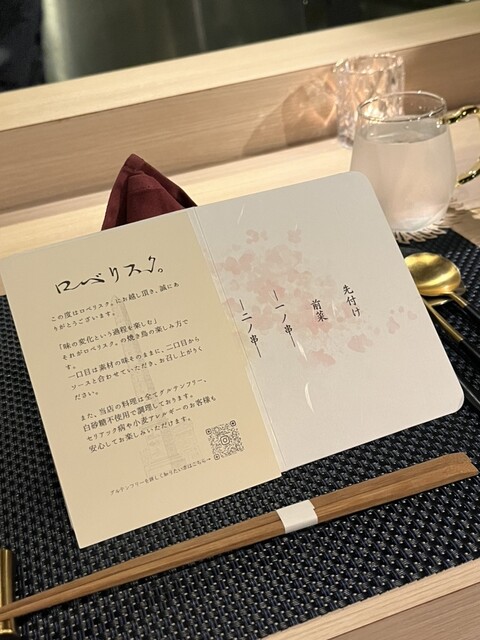 ロベリスク。
この度はロベリスク。にお越し頂き、誠にあ
りがとうございます。
「味の変化という過程を楽しむ」
それがロベリスク。の焼き鳥の楽しみ方で
す。
一口目は素材の味そのままに、二口目から
ソースと合わせていただき、お召し上がりく
ださい。
また、当店の料理は全てグルテンフリー、
白砂糖不使用で調理しております。
セリアック病や小麦アレルギーのお客様も
安心してお楽しみいただけます。
グルテンフリーを詳しく知りたい方はこちら→
先付け
前菜
―一ノ串―
―二ノ串―